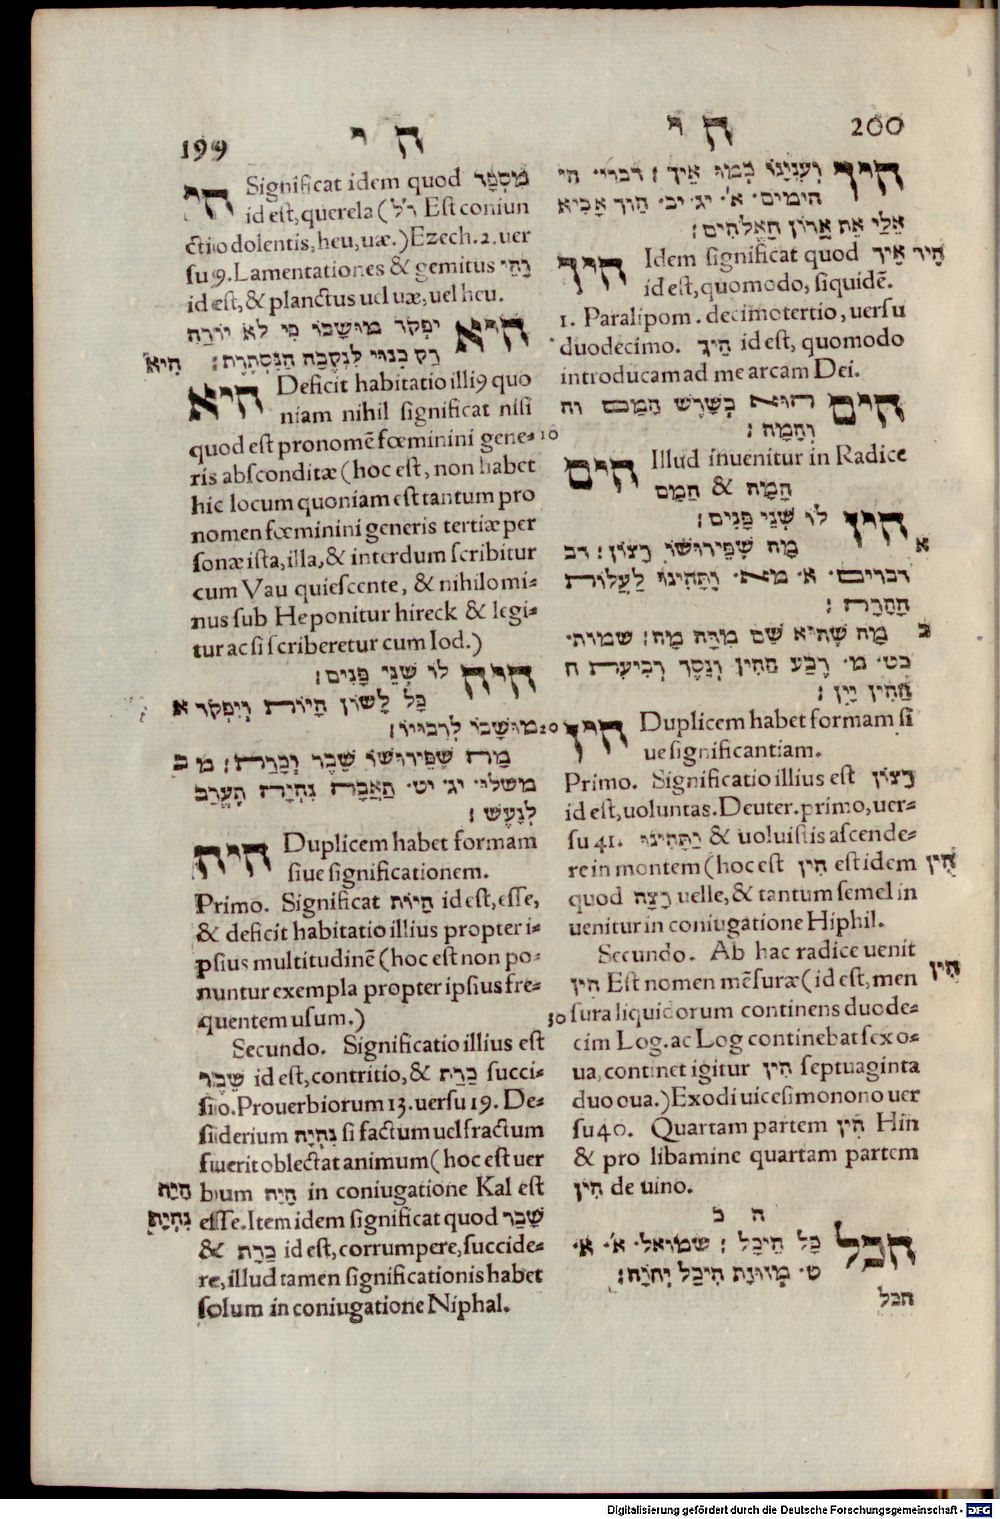 199 ה י
הי Significat idem quod מִסְפָּד
id est, querela (ר׳ל Est coniun
ctio dolentis, heu, uæ.) Ezech. 2. uer
su 9. Lamentationes & gemitus וָהִי
id est, & planctus uel uæ, uel heu.
היא יפקד מושבו כי לא יורה
רק כנוי לנקבה הנסתרת: הִיא
היא Deficit habitatio illiꝰ quo
niam nihil significat nisi
quod est pronomẽ fœminini gene- 10
ris absconditæ (hoc est, non habet
hic locum quoniam est tantum pro
nomen fœminini generis tertiæ per
sonæ ista, illa, & interdum scribitur
cum Vau quiescente, & nihilomi-
nus sub He ponitur hireck & legi-
tur ac si scriberetur cum Iod.)
היה לו שני פנים:
כל לשון היות ויפקד א
מושבו לרבויו: 20
מה שפירושו שבר וכרת: מ ב
משלי יג יט תאבה נהיה תערב
לנפש:
היה Duplicem habet formam
siue significationem.
Primo. Significat הֱיוֹת id est, esse,
& deficit habitatio illius propter i-
psius multitudinẽ (hoc est non po-
nuntur exempla propter ipsius fre-
quentem usum.) 30
Secundo. Significatio illius est
שֶׁבֶר id est, contritio, & כָּרַת succi-
sio. Prouerbiorum 13. uersu 19. De-
siderium נִהְיָה si factum uel fractum
fuerit oblectat animum (hoc est uer
היה bum הָיָה in coniugatione Kal est
נִהְיָה esse. Item idem significat quod שָׁבַר
& כָּרַת id est, corrumpere, succide-
re, illud tamen significationis habet
solum in coniugatione Niphal.
ה י 200
היך ועניינו כמו איך: דברי הי
הימים א׳ יג יב היך אביא
אלי את ארון האלהים:
היך Idem significat quod אֵיךְ היך
id est, quomodo, siquidẽ.
1. Paralipom. decimotertio, uersu
duodecimo. הֵיךְ id est, quomodo
introducam ad me arcam Dei.
הים הוא בשרש המם וה
והמה:
הים Illud inuenitur in Radice
הָמָה & הָמַם
הין לו שני פנים:
מה שפירושו רצון: דב א
דברים א׳ מא ותהינו לעלות
ההרה:
מה שהיא שם מדה מה: שמות ב
כט מ רבע ההין ונסך רביעית ה
ההין יין:
הין Duplicem habet formam si
ue significantiam.
Primo. Significatio illius est רָצוֹן
id est, uoluntas. Deuter. primo, uer-
su 41. וַתָּהִינוּ & uoluistis ascende-
re in montem (hoc est הִין est idem הין
quod רָצָה uelle, & tantum semel in
uenitur in coniugatione Hiphil.
Secundo. Ab hac radice uenit
הִין Est nomen mẽsuræ (id est, men הִין
sura liquidorum continens duode-
cim Log. ac Log continebat sex o-
ua, continet igitur הִין septuaginta
duo oua.) Exodi uicesimonono uer
su 40. Quartam partem הִין Hin
& pro libamine quartam partem
הִין de uino.
ה כ
הכל כל היכל: שמואל א׳ א׳
ט מזוזת היכל יהוה:
הכל
Digitalisierung gefördert durch die Deutsche Forschungsgemeinschaft - DFG